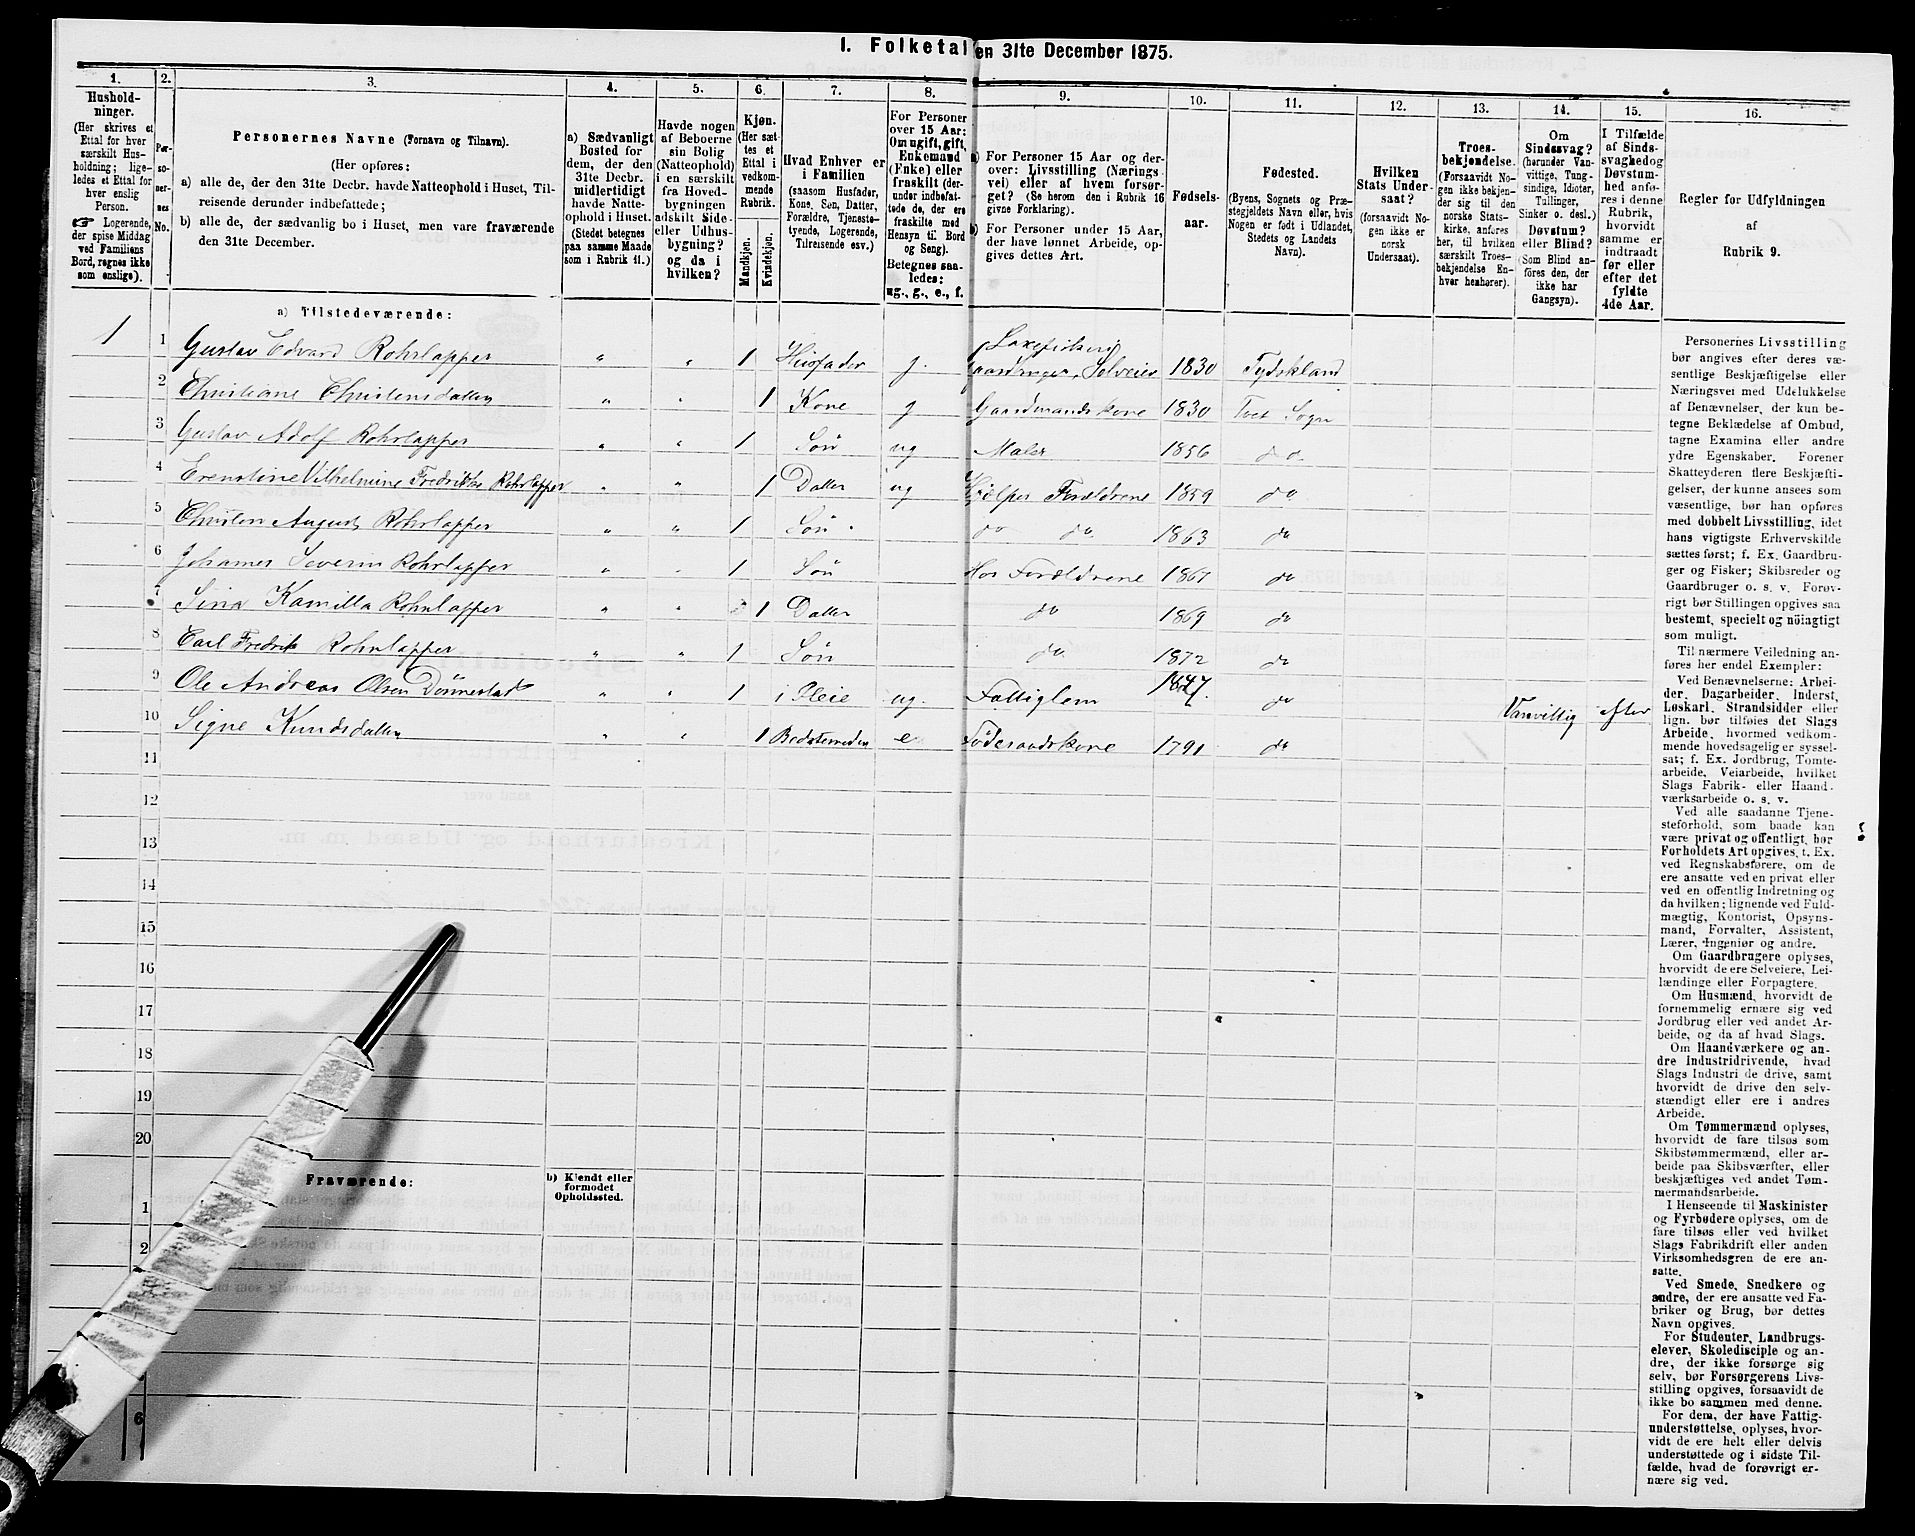 I. Folketal den 31te December 1875.
1.
Hushold-
ninger.
(Her skrives et
Ettal for hver
særskilt Hus-
holdning; lige-
ledes et Ettal for
hver enslig
Person.
☞ Logerende,
der spise Middag
ved Familiens
Bord, regnes ikke
som enslige).
2.
Per-
so-
ner-
nes
No.
3.
Personernes Navne (Fornavn og Tilnavn).
(Her opføres:
a) alle de, der den 31te Decbr. havde Natteophold i Huset, Til-
reisende derunder indbefattede;
b) alle de, der sædvanlig bo i Huset, men vare fraværende
den 31te December.
4.
a) Sædvanligt
Bosted for
dem, der den
31te Decbr.
midlertidigt
havde Natte-
ophold i Huset.
(Stedet betegnes
paa samme Maade
som i Rubrik 11.)
5.
Havde nogen
af Beboerne
sin Bolig
(Natteophold)
i en særskilt
fra Hoved-
bygningen
adskilt Side-
eller Udhus-
bygning?
og da i
hvilken?
6.
Kjøn.
(Her sæt-
tes et
Ettal i
vedkom-
mende
Rubrik.
Mandkjøn.
Kvindekjøn.
7.
Hvad Enhver er
i Familien
(saasom Husfader,
Kone, Søn, Datter,
Forældre, Tjeneste-
tyende, Logerende,
Tilreisende osv.)
8.
For Personer
over 15 Aar:
Om ugift, gift,
Enkemand
(Enke) eller
fraskilt (der-
under indbefat-
tede de, der ere
fraskilte med
Hensyn til Bord
og Seng).
Betegnes saa-
ledes:
ug., g., e., f.
9.
a) For Personer 15 Aar og der-
over: Livsstilling (Nærings-
vei) eller af hvem forsør-
get? (Se herom den i Rubrik 16
givne Forklaring).
b) For Personer under 15 Aar,
der have lønnet Arbeide, op-
gives dettes Art.
10.
Fødsels-
aar.
11.
Fødested.
(Byens, Sognets og Præ-
stegjeldets Navn eller, hvis
Nogen er født i Udlandet,
Stedets og Landets
Navn).
12.
Hvilken
Stats Under-
saat?
(forsaavidt No-
gen ikke er
norsk
Undersaat).
13.
Troes-
bekjendelse.
(Forsaavidt No-
gen ikke bekjen-
der sig til den
norske Stats-
kirke, anføres
her, til hvilken
særskilt Troes-
bekjendelse En-
hver henhører).
14.
Om
Sindssvag?
(herunder Van-
vittige, Tung-
sindige, Idioter,
Tullinger,
Sinker o. desl.)
Døvstum?
eller Blind?
(Som Blind an-
føres den, der
ikke har
Gangsyn).
15.
I Tilfælde
af Sinds-
svaghed og
Døvstum-
hed anfø-
res i denne
Rubrik,
hvorvidt
samme er
indtraadt
før eller
efter det
fyldte
4de Aar.
16.
Regler for Udfyldningen
af
Rubrik 9.
a) Tilstedeværende:
1 1 Gustav Edvard Rohrlapper " " 1 Husfader g. Laxefiskeri Gaardbruger, Selveier 1830 Tydskland
2 Christiane Christensdatter " " 1 Kone g Gaardmandskone 1830 Tvet Sogn
3 Gustav Adolf Rohrlapper " " 1 Søn ug Maler 1856 do
4 Ernstine Vilhelmine Fredrikke Rohrlapper " " 1 Datter ug Hjælper Forældrene 1859 do
5 Christen August Rohrlapper " " 1 Søn do do 1863 do
6 Johannes Severin Rohrlapper " " 1 Søn Hos Forældrene 1867 do
7 Sina Kamilla Rohrlapper " " 1 Datter do 1869 do
8 Carl Fredrik Rohrlapper " " 1 Søn do 1872 do
9 Ole Andreas Olsen Dønnestad " " 1 i Pleie ug. Fattiglem 1847. do Vanvittig efter
10 Signe Knudsdatter " " 1 Bedstemoder e Føderaadskone 1791 do
11
12
13
14
15
16
17
18
19
20
Fraværende:
b) Kjendt eller
formodet
Opholdssted.
1
2
6
Personernes Livsstilling
bør angives efter deres væ-
sentlige Beskjæftigelse eller
Næringsvei med Udelukkelse
af Benævnelser, der kun be-
tegne Beklædelse af Ombud,
tagne Examina eller andre
ydre Egenskaber. Forener
Skatteyderen flere Beskjæfti-
gelser, der kunne ansees som
væsentlige, bør han opføres
med dobbelt Livsstilling, idet
hans vigtigste Erhvervskilde
sættes først; f. Ex. Gaardbru-
ger og Fisker; Skibsreder og
Gaardbruger o. s. v. Forøv-
rigt bør Stillingen opgives saa
bestemt, specielt og nöiagtigt
som muligt.
Til nærmere Veiledning an-
føres her endel Exempler:
Ved Benævnelserne: Arbei-
der, Dagarbeider, Inderst,
Løskarl, Strandsidder eller
lign. bør tilføies det Slags
Arbeide, hvormed vedkom-
mende hovedsagelig er syssel-
sat; f. Ex. Jordbrug, Tomte-
arbeide, Veiarbeide, hvilket
Slags Fabrik- eller Haand-
værksarbeide o. s. v.
Ved alle saadanne Tjene-
steforhold, som baade kan
være privat og offentligt, bør
Forholdets Art opgives, t. Ex.
ved Regnskabsførere, om de
ere ansatte ved en privat eller
ved en offentlig Indretning og
da hvilken; lignende ved Fuld-
mægtig, Kontorist, Opsyns-
mand, Forvalter, Assistent,
Lærer, Ingeniør og andre.
Om Gaardbrugere oplyses,
hvorvidt de ere Selveiere, Lei-
lændinge eller Forpagtere.
Om Husmænd, hvorvidt de
fornemmelig ernære sig ved
Jordbrug eller ved andet Ar-
beide, og da af hvad Slags.
Om Haandværkere og an-
dre Industridrivende, hvad
Slags Industri de drive, samt
hvorvidt de drive den selv-
stændigt eller ere i andres
Arbeide.
Om Tømmermænd oplyses,
hvorvidt de fare tilsøs som
Skibstømmermænd, eller ar-
beide paa Skibsværfter, eller
beskjæftiges ved andet Tøm-
mermandsarbeide.
I Henseende til Maskinister
og Fyrbødere oplyses, om de
fare tilsøs eller ved hvilket
Slags Fabrikdrift eller anden
Virksomhedsgren de ere an-
satte.
Ved Smede, Snedkere og
andre, der ere ansatte ved Fa-
briker og Brug, bør dettes
Navn opgives.
For Studenter, Landbrugs-
elever, Skoledisciple og an-
dre, der ikke forsørge sig
selv, bør Forsørgerens Livs-
stilling opgives, forsaavidt de
ikke bo sammen med denne.
For dem, der have Fattig-
understøttelse, oplyses, hvor-
vidt de ere helt eller delvis
understøttede og i sidste Til-
fælde, hvad de forøvrigt er-
nære sig ved.